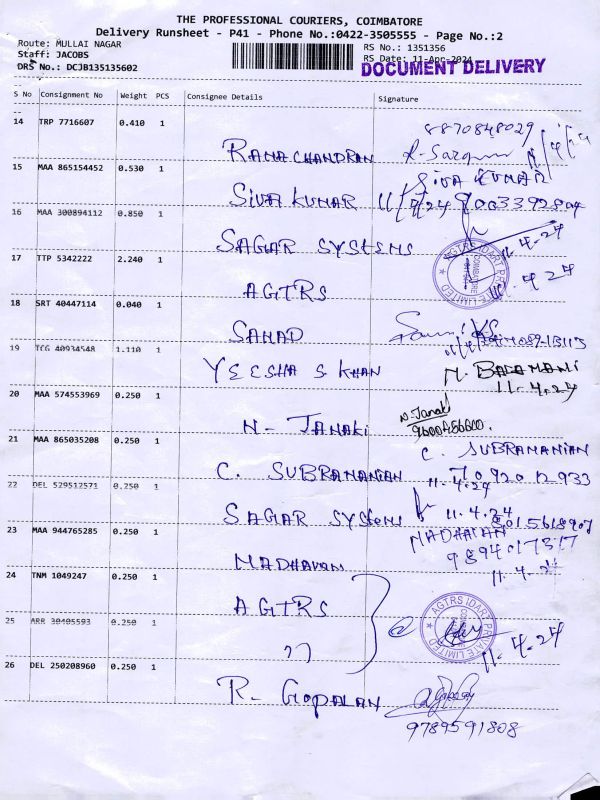 THE PROFESSIONAL COURIERS, COIMBATORE
Delivery Runsheet - P41 - Phone No.:0422-3505555 - Page No.:2
Route: MULLAI NAGAR
RS No.: 1351356
Staff: JACOBS
RS Date: 11-Apr-2024
DRS No.: DCJB135135602
DOCUMENT DELIVERY
S No Consignment No Weight PCS Consignee Details Signature
14 TRP 7716607 0.410 1
8870848029
RAMACHANDRAN
15 MAA 865154452 0.530 1
SIVA KUMAR
SIVA KUMAR 11/4/24
16 MAA 300894112 0.850 1
SAGAR SYSTEMS 11.4.24
17 TTP 5342222 2.240 1
AGTRS IDART PRIVATE LIMITED
COIMBATORE
AGTRS
18 SRT 40447114 0.040 1
SAMAD
19 TCG 40934548 1.110 1
YEESHA S KHAN M. BALAMANI
11.4.24
20 MAA 574553969 0.250 1
N. Janaki
N- JANAKI
21 MAA 865035208 0.250 1
C. SUBRAMANIAN
C. SUBRAMANIAN 7092012933
11.4.24
22 DEL 529512571 0.250 1
SAGAR SYSTEMS 11.4.24
8015618907
23 MAA 944765285 0.250 1
MADHAVAN
9894017317
MADHAVAN
24 TNM 1049247 0.250 1
AGTRS
AGTRS IDART PRIVATE LIMITED
25 ARR 30405593 0.250 1
11.4.24
26 DEL 250208960 0.250 1
R- GOPALAN
9789591808